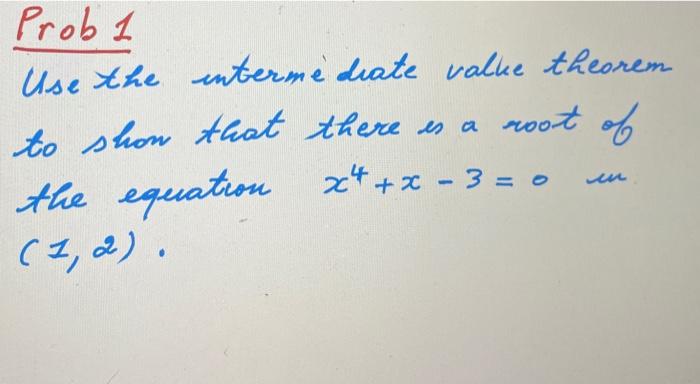 Prob 1
Use the intermediate value theorem
to show that there is a root of
the equation x⁴ + x - 3 = 0 in
(1, 2).